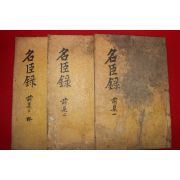 名臣錄
前集一
名臣錄
前集二
名臣錄
前集